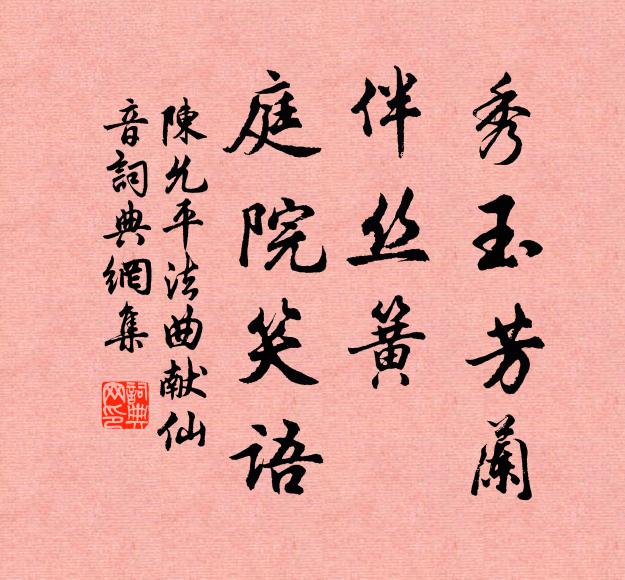 秀玉芳蘭
伴丝簧
庭院笑语
陳允平法曲献仙
音詞典網集
詞典
网印